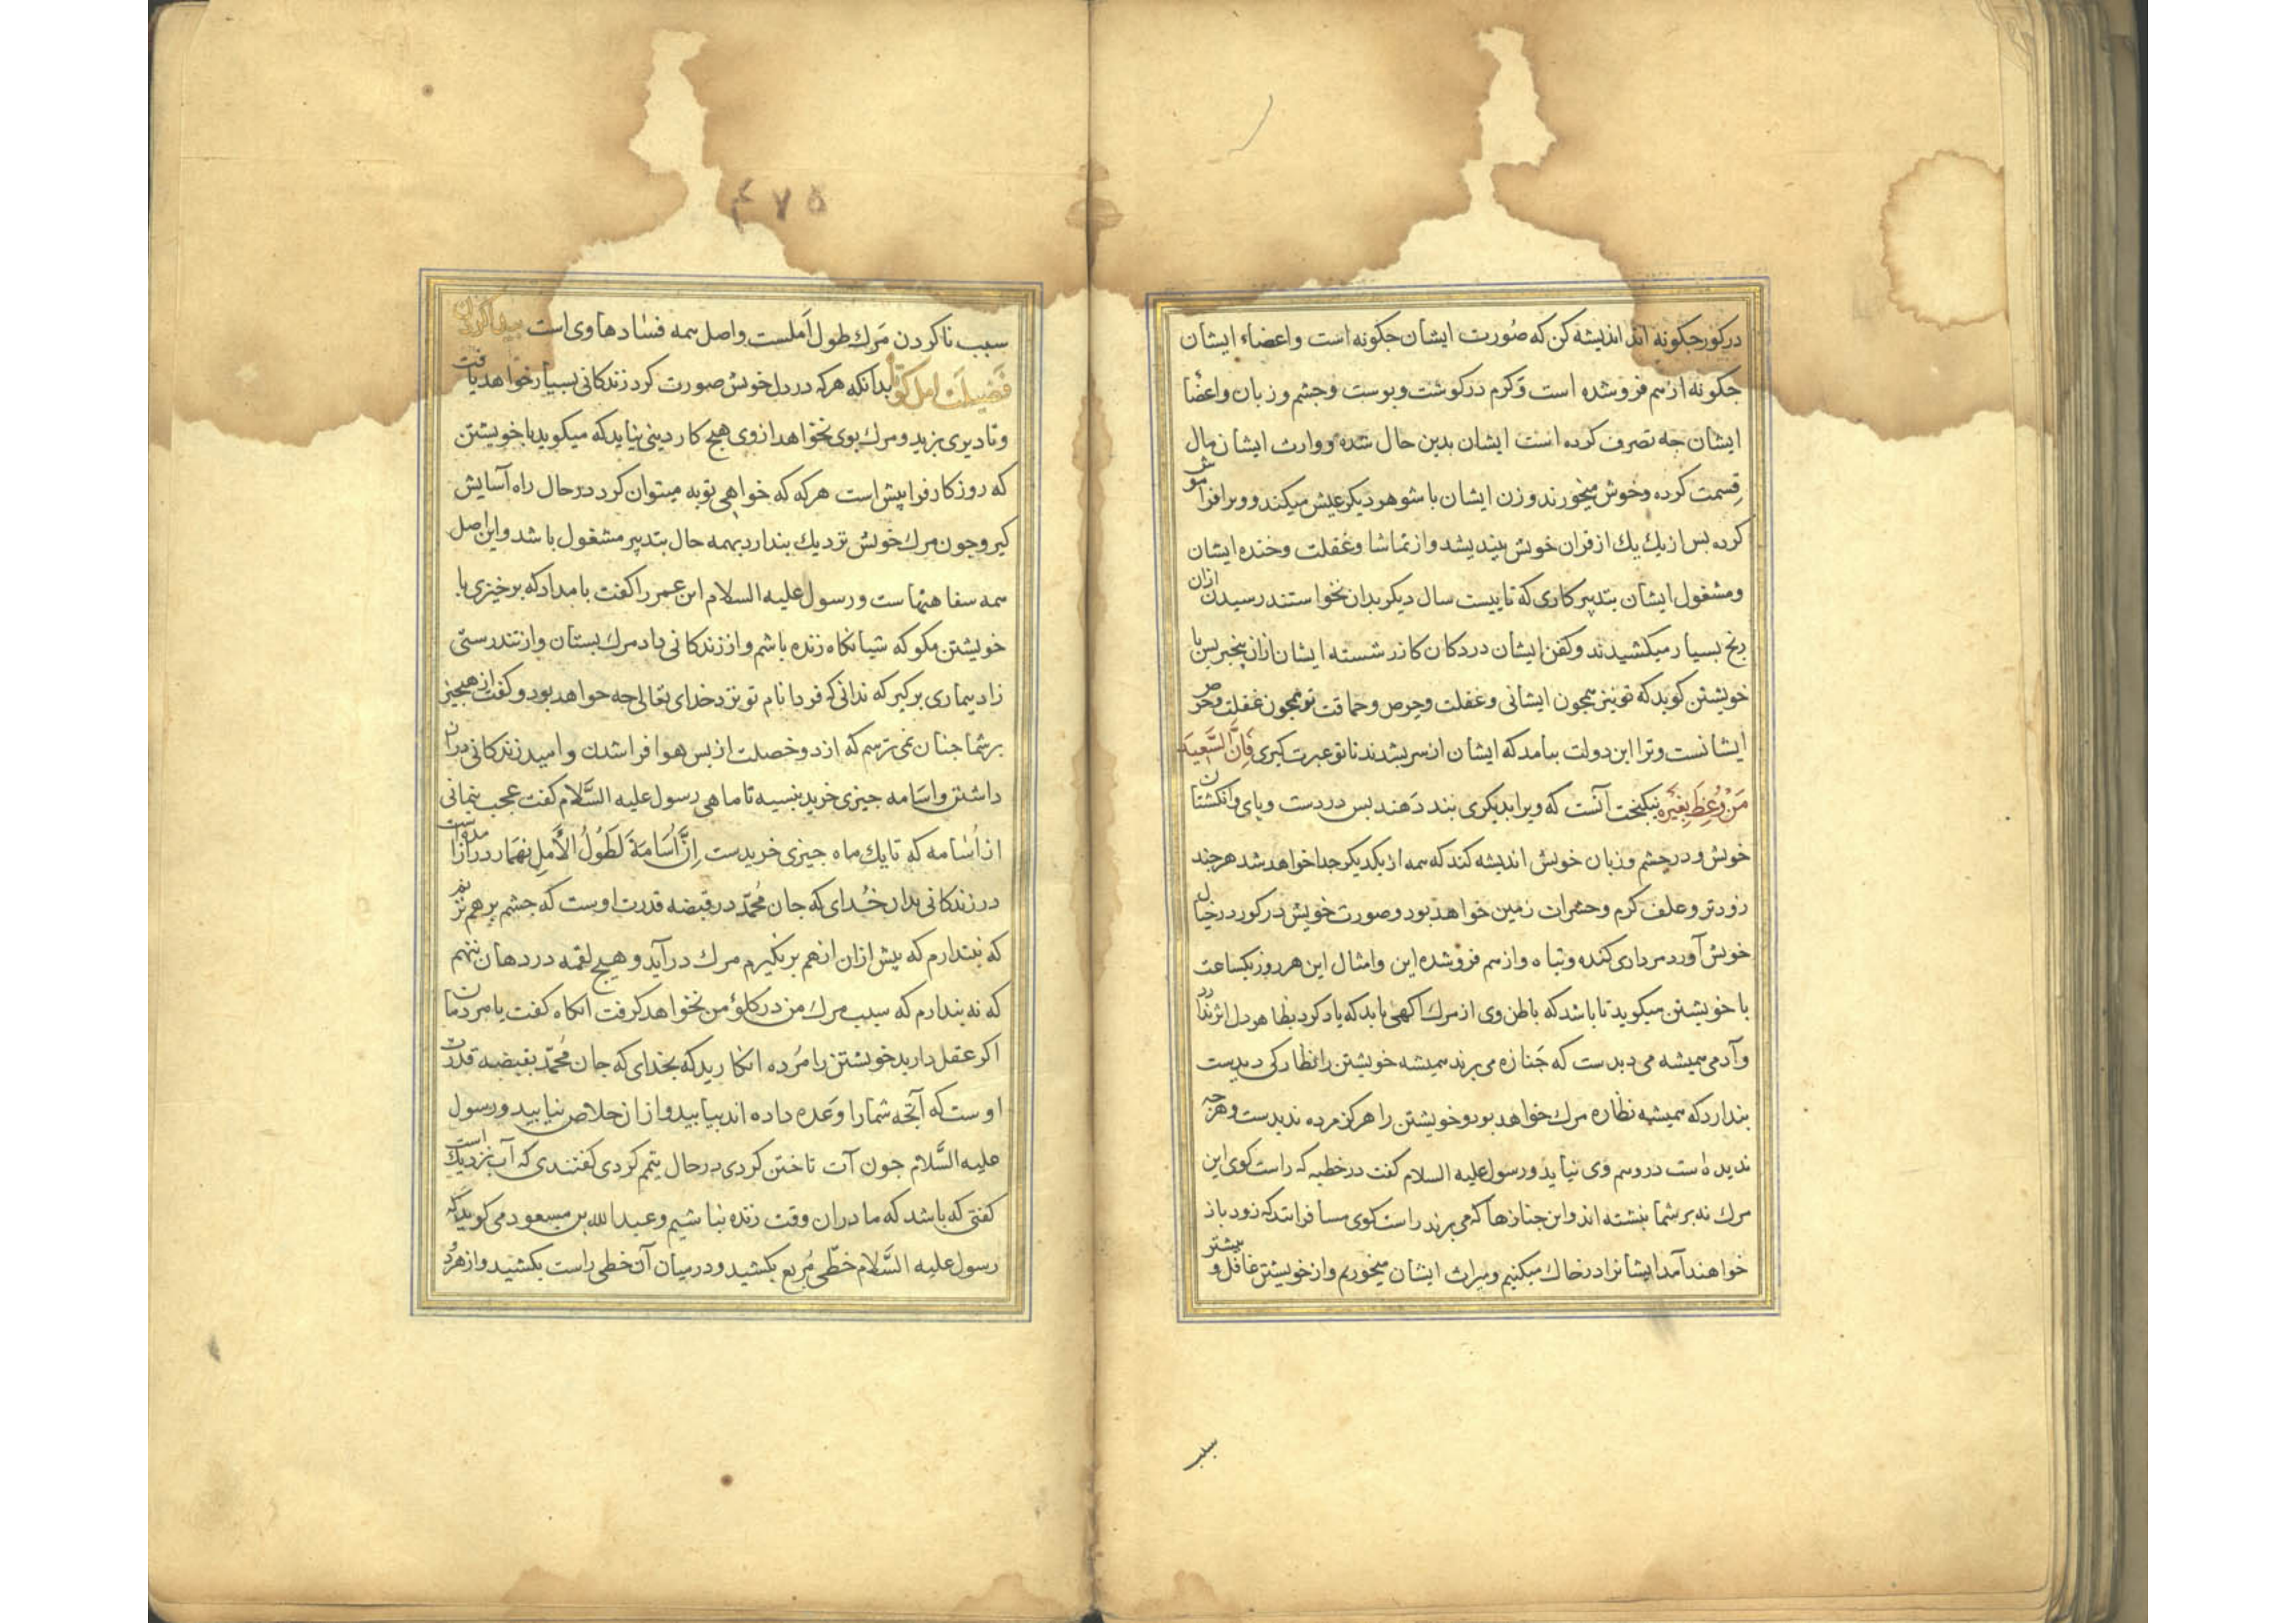 درکور جکونه اند اندیشه کن که صُورت ایشان جکونه است و اعضاء ایشان
جکونه از هم فرو شده است وَکرم در کوشت و بوست و جشم و زبان و اعضا
ایشان جه تصرف کرده است ایشان بدین حال شده و وارث ایشان مال
قِسمت کرده و خوش میخورند و زن ایشان با شوهر دیکر عیش میکند و ویرا فراموش
کرده بس از یک یک از قران خویش بیندیشد و از تماشا و غفلت و خنده ایشان
و مشغول ایشان بتدبیر کاری که تا بیست سال دیکر بدان نخواستند رسیدن ازان
رنج بسیار میکشیدند و کفن ایشان در دکان کازر شسته ایشان ازان بیخبر بس با
خویشتن کوید که تو نیز همجون ایشانی و غفلت و حرص و حماقت تو همجون غفلت و حرص
ایشانست و ترا این دولت بیامد که ایشان از سر بشدند تا تو عبرت کیری فَاِنَّ السَّعِیدَ
مَنْ وُعِظَ بِغَیْرِه نیکبخت آنست که ویرا بدیکری بند دَهند بس در دست و بای و انکشتان
خویش و در جشم و زبان خویش اندیشه کند که همه از یکدیکر جدا خواهد شد هر جند
زودتر و علف کرم و حشرات زمین خواهد بود و صورت خویش در کور در خیال
خویش آورد مرداری کنده و تباه و از هم فرو شده این و امثال این هر روز یکساعت
با خویشتن میکوید تا باشد که باطن وی از مرک آکهی یابد که یاد کرد بظاهر در دل اثر ندارد
و آدمی همیشه می دیدست که جَنازه می برند همیشه خویشتن را نظارکی دیدست
بندارد که همیشه نظاره مرک خواهد بود و خویشتن را هرکز مرده ندیدست و هر جه
ندیده است در وهم وی نیاید و رسول علیه السلام کفت در خطبه که راست کوی این
مرک نه بر شما نبشته اند و این جنازها که می برند راست کوی مسافرانند که زود باز
خواهند آمد ایشانرا در خاک میکنیم و میراث ایشان میخوریم و از خویشتن غافل و بیشتر
سبب
۴۷۵
سبب نا کردن مَرک طول اَملست و اصل همه فسادها وی است پیدا کردن
فَضیلَت امل کوتاه بدانکه هر که در دل خویش صورت کرد زندکانی بسیار خواهد یافت
و تا دیری بزید و مرک بوی نخواهد از وی هیج کار دینی نیاید که میکوید با خویشتن
که روز کار فرا پیش است هر که که خواهی توبه میتوان کرد در حال راه آسایش
کیر و جون مرک خویش نزدیک بندارد بهمه حال بتدبیر مشغول باشد و این اصل
همه سفاهتهاست و رسول علیه السلام ابن عمر را کفت بامداد که برخیزی با
خویشتن مکو که شبانکاه زنده باشم و از زندکانی داد مرک بستان و از تندرستی
زاد بیماری برکیر که ندانی که فردا نام تو نزد خدای تعالی جه خواهد بود و کفت از هیج جیز
بر شما جنان نمی ترسم که از دو خصلت از بس هوا فرا شدن و امید زندکانی دراز
داشتن و اسَامه جیزی خرید بنسیه تا ماهی رسول علیه السَّلام کفت عجب نمانی
از اُسامه که تا یک ماه جیزی خریدست اِنَّ اُسَامَةَ لَطَوُلُ الأَمَلِ نهمار دراز امیدست
در زندکانی بدان خُدای که جان مُحمّد در قبضه قدرت اوست که جشم بر هم نزنم
که نبندارم که بیش ازان از هم برنکیرم مرک درآید و هیج لقمه در دهان ننهم
که نه بندارم که سبب مرک من در کلؤ من نخواهد کرفت انکاه کفت یا مردمان
اکر عقل دارید خویشتن را مُرده انکارید که بخدای که جان مُحمّد بقبضه قدرت
اوست که آنجه شما را وَعده داده اند بیابید و ازان خلاص نیابید و رسول
علیه السَّلام جون آب تاختن کردی در حال تیمم کردی کفتندی که آب نزدیک است
کفتی که باشد که ما دران وقت زنده نباشیم و عبدالله بن مسعود می کوید که
رسول علیه السَّلام خطّی مُربع بکشید و در میان آن خطی راست بکشید و از هر دُو